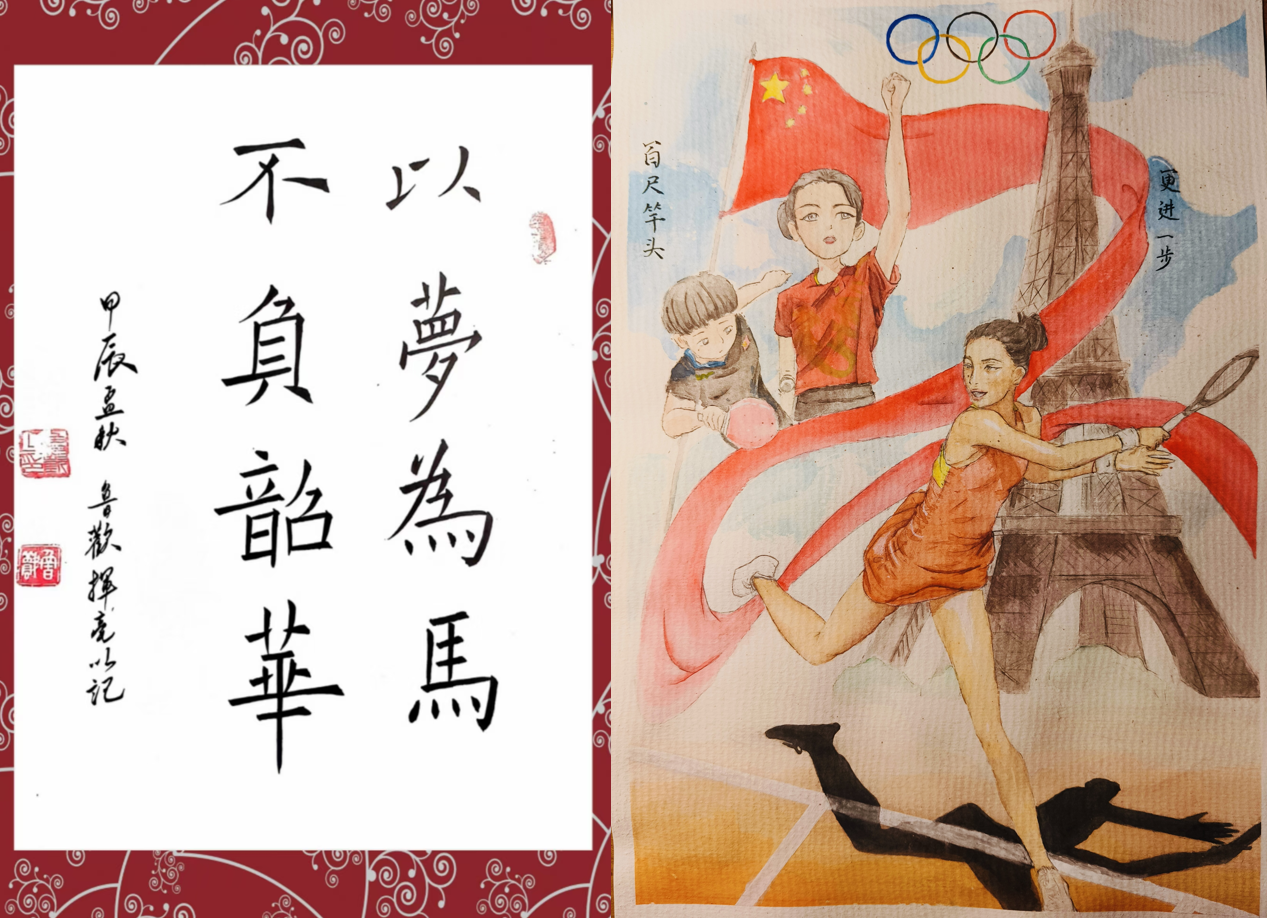 以夢為馬
不負韶華
甲辰孟秋 魯歡揮亳以記
百尺竿头
更进一步